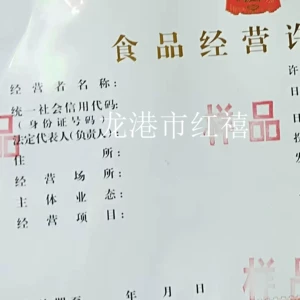 食品经营许
经营者名称：
统一社会信用代码：
（身份证号码）
法定代表人(负责人)：
住所：
经营场所：
主体业态：
经营项目：
许
日
龙港市红禧
样品
品
样品
年月日